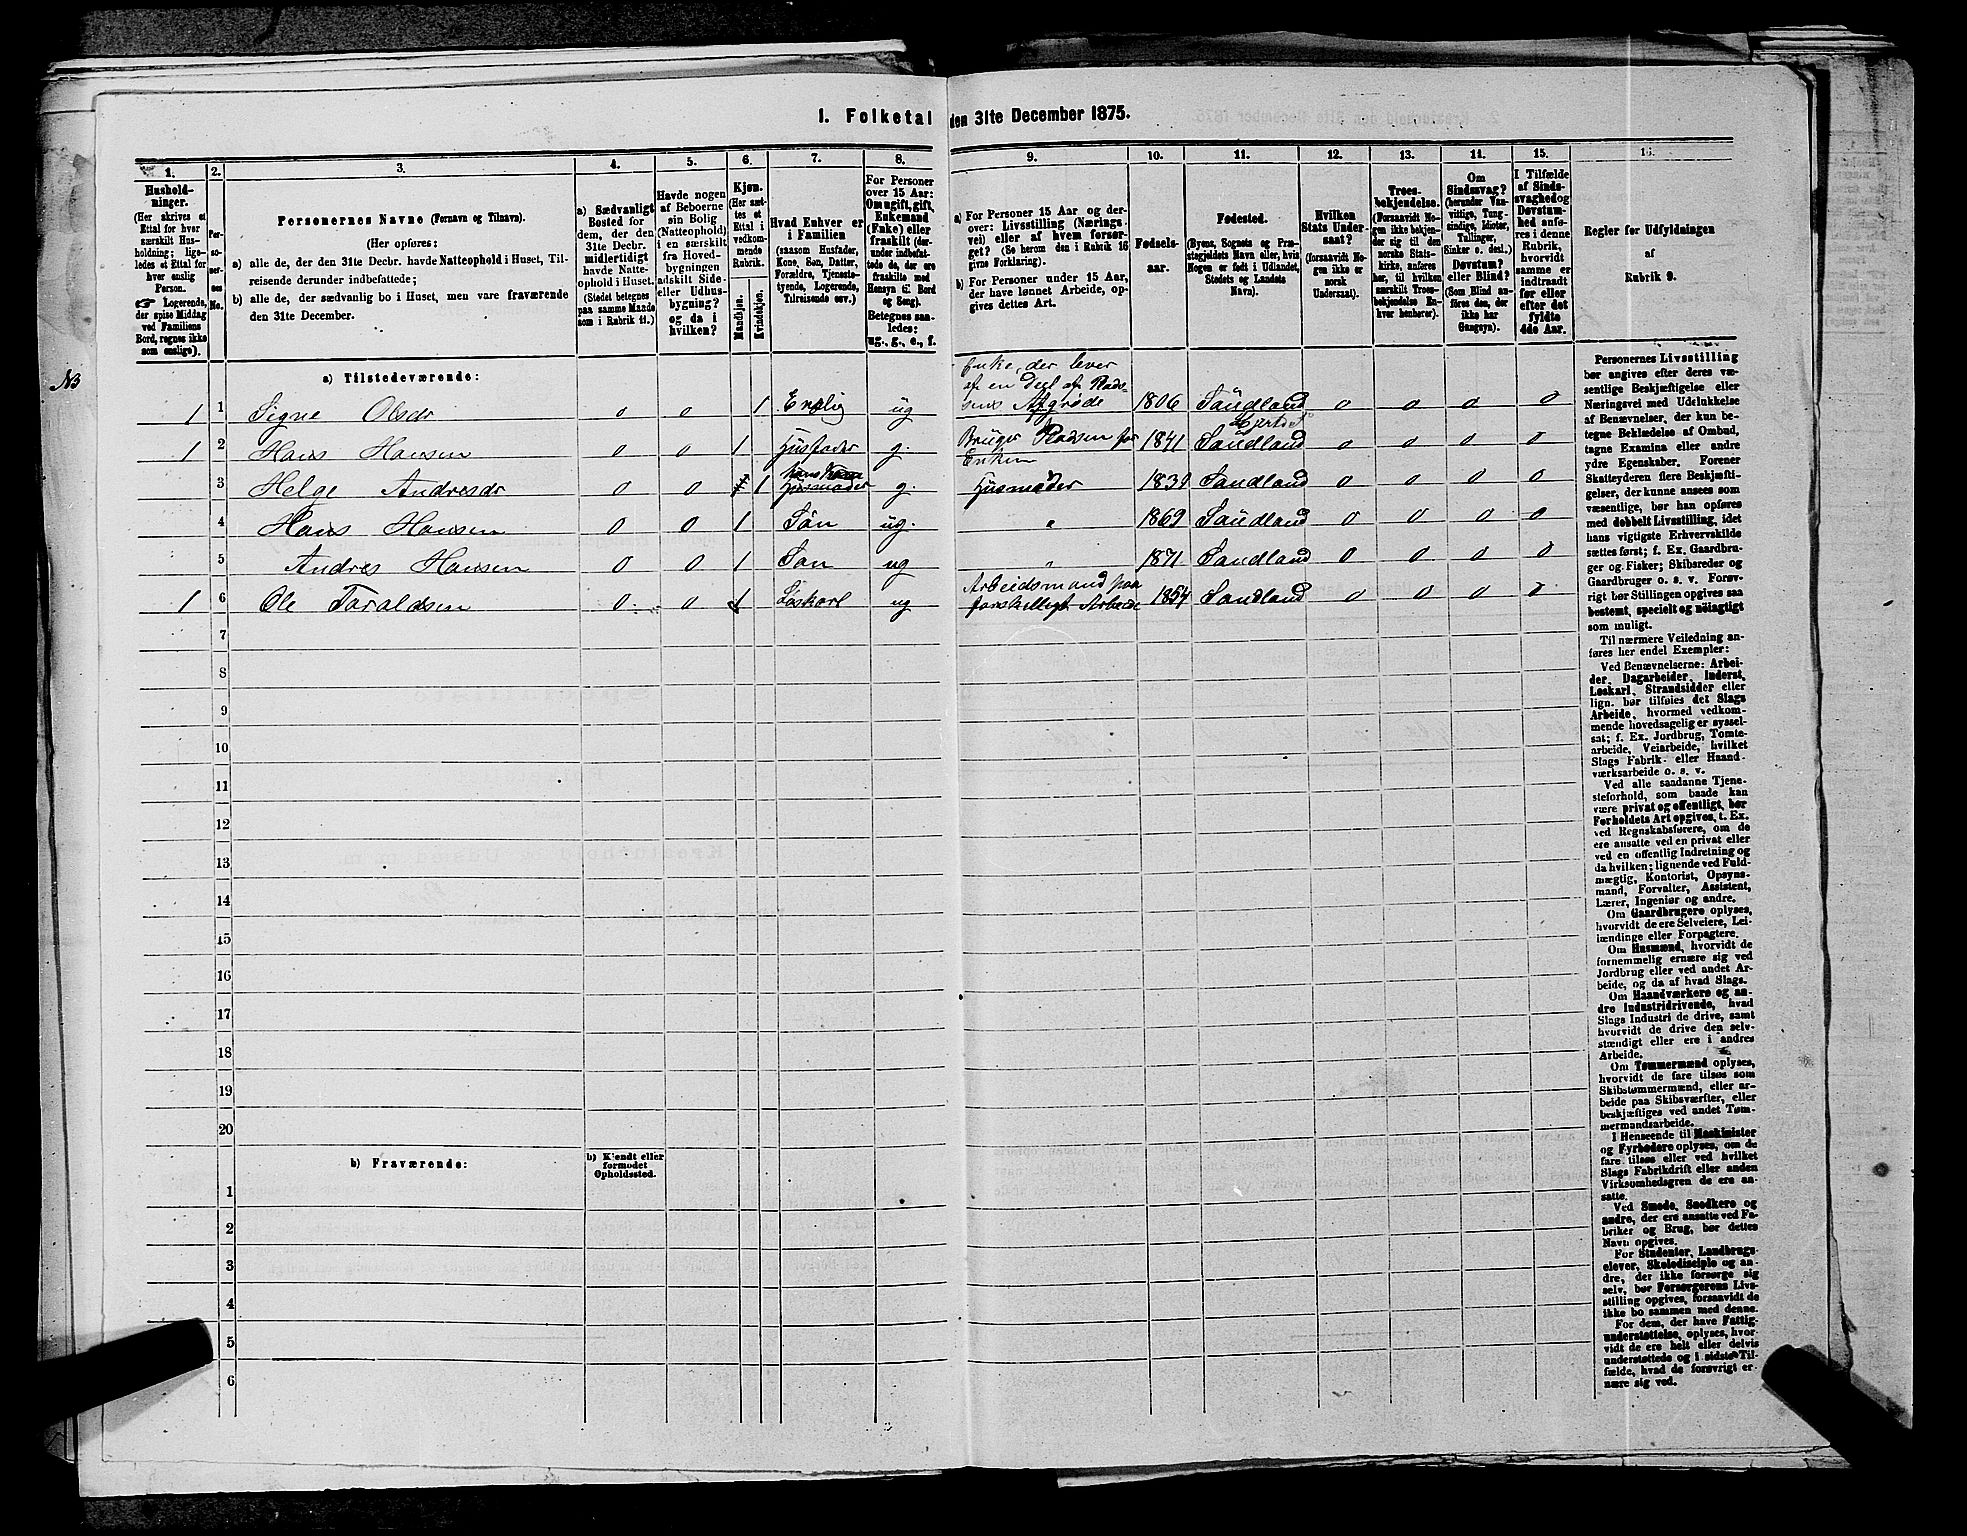 1. Folketal den 31te December 1875.
1.
Hushold-
ninger.
(Her skrives et
Ettal for hver
særskilt Hus-
holdning; lige-
ledes et Ettal for
hver enslig
Person.
☞ Logerende,
der spise Middag
ved Familiens
Bord, regnes ikke
som enslige).
2.
Per-
so-
ner-
nes
No.
3.
Personernes Navne (Fornavn og Tilnavn).
(Her opføres:
a) alle de, der den 31te Decbr. havde Natteophold i Huset, Til-
reisende derunder indbefattede;
b) alle de, der sædvanlig bo i Huset, men vare fraværende
den 31te December.
4.
a) Sædvanligt
Bosted for
dem, der den
31te Decbr.
midlertidigt
havde Natte-
ophold i Huset.
(Stedet betegnes
paa samme Maade
som i Rubrik 11.)
5.
Havde nogen
af Beboerne
sin Bolig
(Natteophold)
i en særskilt
fra Hoved-
bygningen
adskilt Side-
eller Udhus-
bygning?
og da i
hvilken?
6.
Kjøn.
(Her sæt-
tes et
Ettal i
vedkom-
mende
Rubrik.
Mandkjøn.
Kvindekjøn.
7.
Hvad Enhver er
i Familien
(saasom Husfader,
Kone, Søn, Datter,
Forældre, Tjeneste-
tyende, Logerende,
Tilreisende osv.)
8.
For Personer
over 15 Aar:
Om ugift, gift,
Enkemand
(Enke) eller
fraskilt (der-
under indbefat-
tede de, der ere
fraskilte med
Hensyn til Bord
og Seng).
Betegnes saa-
ledes:
ug., g., e., f.
9.
a) For Personer 15 Aar og der-
over: Livsstilling (Nærings-
vei) eller af hvem forsør-
get? (Se herom den i Rubrik 16
givne Forklaring).
b) For Personer under 15 Aar,
der have lønnet Arbeide, op-
gives dettes Art.
10.
Fødsels-
aar.
11.
Fødested.
(Byens, Sognets og Præ-
stegjeldets Navn eller, hvis
Nogen er født i Udlandet,
Stedets og Landets
Navn).
12.
Hvilken
Stats Under-
saat?
(forsaavidt No-
gen ikke er
norsk
Undersaat).
13.
Troes-
bekjendelse.
(Forsaavidt No-
gen ikke hen-
hører til den
norske Stats-
kirke, anføres
her, til hvilken
særskilt Troes-
bekjendelse En-
hver henhører).
14.
Om
Sindssvag?
(herunder Van-
vittige, Tung-
sindige, Idioter,
Tullinger,
Sinker o. desl.)
Døvstum?
eller Blind?
(Som Blind an-
føres den, der
ikke har
Gangsyn).
15.
I Tilfælde
af Sinds-
svaghed og
Døvstum-
hed anfø-
res i denne
Rubrik,
hvorvidt
samme er
indtraadt
før eller
efter det
fyldte
4de Aar.
16.
Regler for Udfyldningen
af
Rubrik 9.
a) Tilstedeværende:
NB
1 1 Signe Olsdr 0 0 1 Enslig ug Enke, der lever af en Deel af Pladsens Afgrøde 1806 Saudland Hjertdal 0 0 0 0
1 2 Hans Hansen 0 0 1 Husfader g. Bruger Pladsen for Enken 1841 Saudland 0 0 0 0
3 Helge Andresdr 0 0 1 hans Kone Husmoder g. Husmoder 1839 Saudland 0 0 0 0
4 Hans Hansen 0 0 1 Søn ug. " 1869 Saudland 0 0 0 0
5 Andres Hansen 0 0 1 Søn ug " 1871 Saudland 0 0 0 0
1 6 Ole Taraldsen 0 0 1 Løskarl ug Arbeidsmand paa forskelligt Arbeide 1854 Saudland 0 0 0 0
7
8
9
10
11
12
13
14
15
16
17
18
19
20
b) Fraværende:
b) Kjendt eller
formodet
Opholdssted.
1
2
3
4
5
6
Personernes Livsstilling
bør angives efter deres væ-
sentlige Beskjæftigelse eller
Næringsvei med Udelukkelse
af Benævnelser, der kun be-
tegne Beklædelse af Ombud,
tagne Examina eller andre
ydre Egenskaber. Forener
Skatteyderen flere Beskjæfti-
gelser, der kunne ansees som
væsentlige, bør han opføres
med dobbelt Livsstilling, idet
hans vigtigste Erhvervskilde
sættes først; f. Ex. Gaardbru-
ger og Fisker; Skibsreder og
Gaardbruger o. s. v. Forøv-
rigt bør Stillingen opgives saa
bestemt, specielt og nøiagtigt
som muligt.
Til nærmere Veiledning an-
føres her endel Exempler:
Ved Benævnelserne: Arbei-
der, Dagarbeider, Inderst,
Løskarl, Strandsidder eller
lign. bør tilføies det Slags
Arbeide, hvormed vedkom-
mende hovedsagelig er syssel-
sat; f. Ex. Jordbrug, Tomte-
arbeide, Veiarbeide, hvilket
Slags Fabrik- eller Haand-
værksarbeide o. s. v.
Ved alle saadanne Tjene-
steforhold, som baade kan
være privat og offentligt, bør
Forholdets Art opgives, t. Ex.
ved Regnskabsførere, om de
ere ansatte ved en privat eller
ved en offentlig Indretning og
da hvilken; lignende ved Fuld-
mægtig, Kontorist, Opsyns-
mand, Forvalter, Assistent,
Lærer, Ingeniør og andre.
Om Gaardbrugere oplyses,
hvorvidt de ere Selveiere, Lei-
lændinge eller Forpagtere.
Om Husmænd, hvorvidt de
fornemmelig ernære sig ved
Jordbrug eller ved andet Ar-
beide, og da af hvad Slags.
Om Haandværkere og an-
dre Industridrivende, hvad
Slags Industri de drive, samt
hvorvidt de drive den selv-
stændigt eller ere i andres
Arbeide.
Om Tømmermænd oplyses,
hvorvidt de fare tilsøs som
Skibstømmermænd, eller ar-
beide paa Skibsværfter, eller
beskjæftiges ved andet Tøm-
mermandsarbeide.
I Henseende til Maskinister
og Fyrbødere oplyses, om de
fare tilsøs eller ved hvilket
Slags Fabrikdrift eller anden
Virksomhedsgren de ere an-
satte.
Ved Smede, Snedkere og
andre, der ere ansatte ved Fa-
briker og Brug, bør dettes
Navn opgives.
For Studenter, Landbrugs-
elever, Skoledisciple og an-
dre, der ikke forsørge sig
selv, bør Forsørgerens Livs-
stilling opgives, forsaavidt de
ikke bo sammen med denne.
For dem, der have Fattig-
understøttelse, oplyses, hvor-
vidt de ere helt eller delvis
understøttede og i sidste Til-
fælde, hvad de forøvrigt er-
nære sig ved.